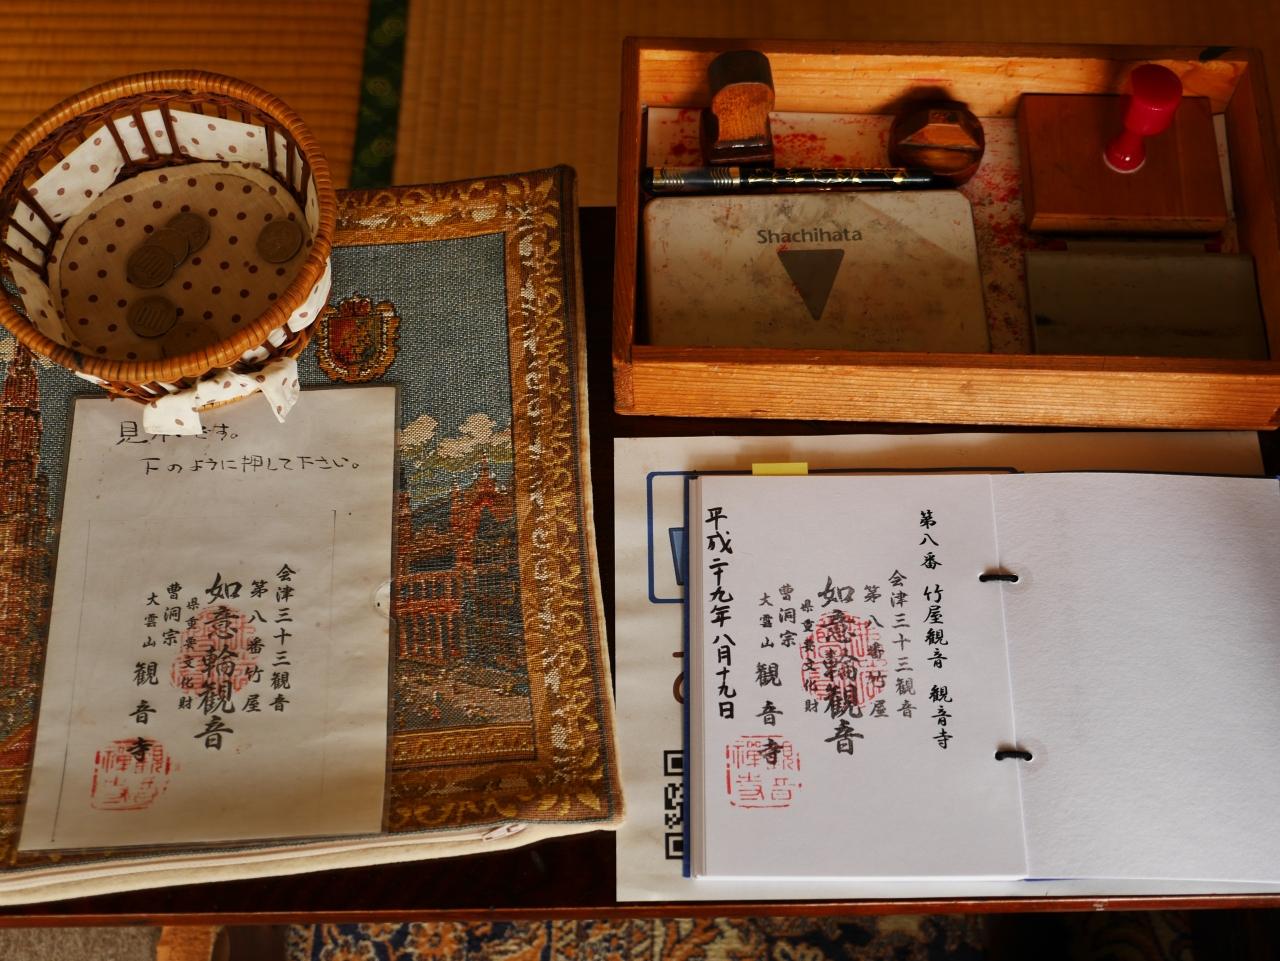 見本です。
下のように押して下さい。
会津三十三観音
第八番竹屋
如意輪観音
県重要文化財
曹洞宗
大雲山 観音寺
観音禅寺
Shachihata
第八番 竹屋観音 観音寺
会津三十三観音
第八番竹屋
如意輪観音
県重要文化財
曹洞宗
大雲山 観音寺
観音禅寺
平成二十九年八月十九日